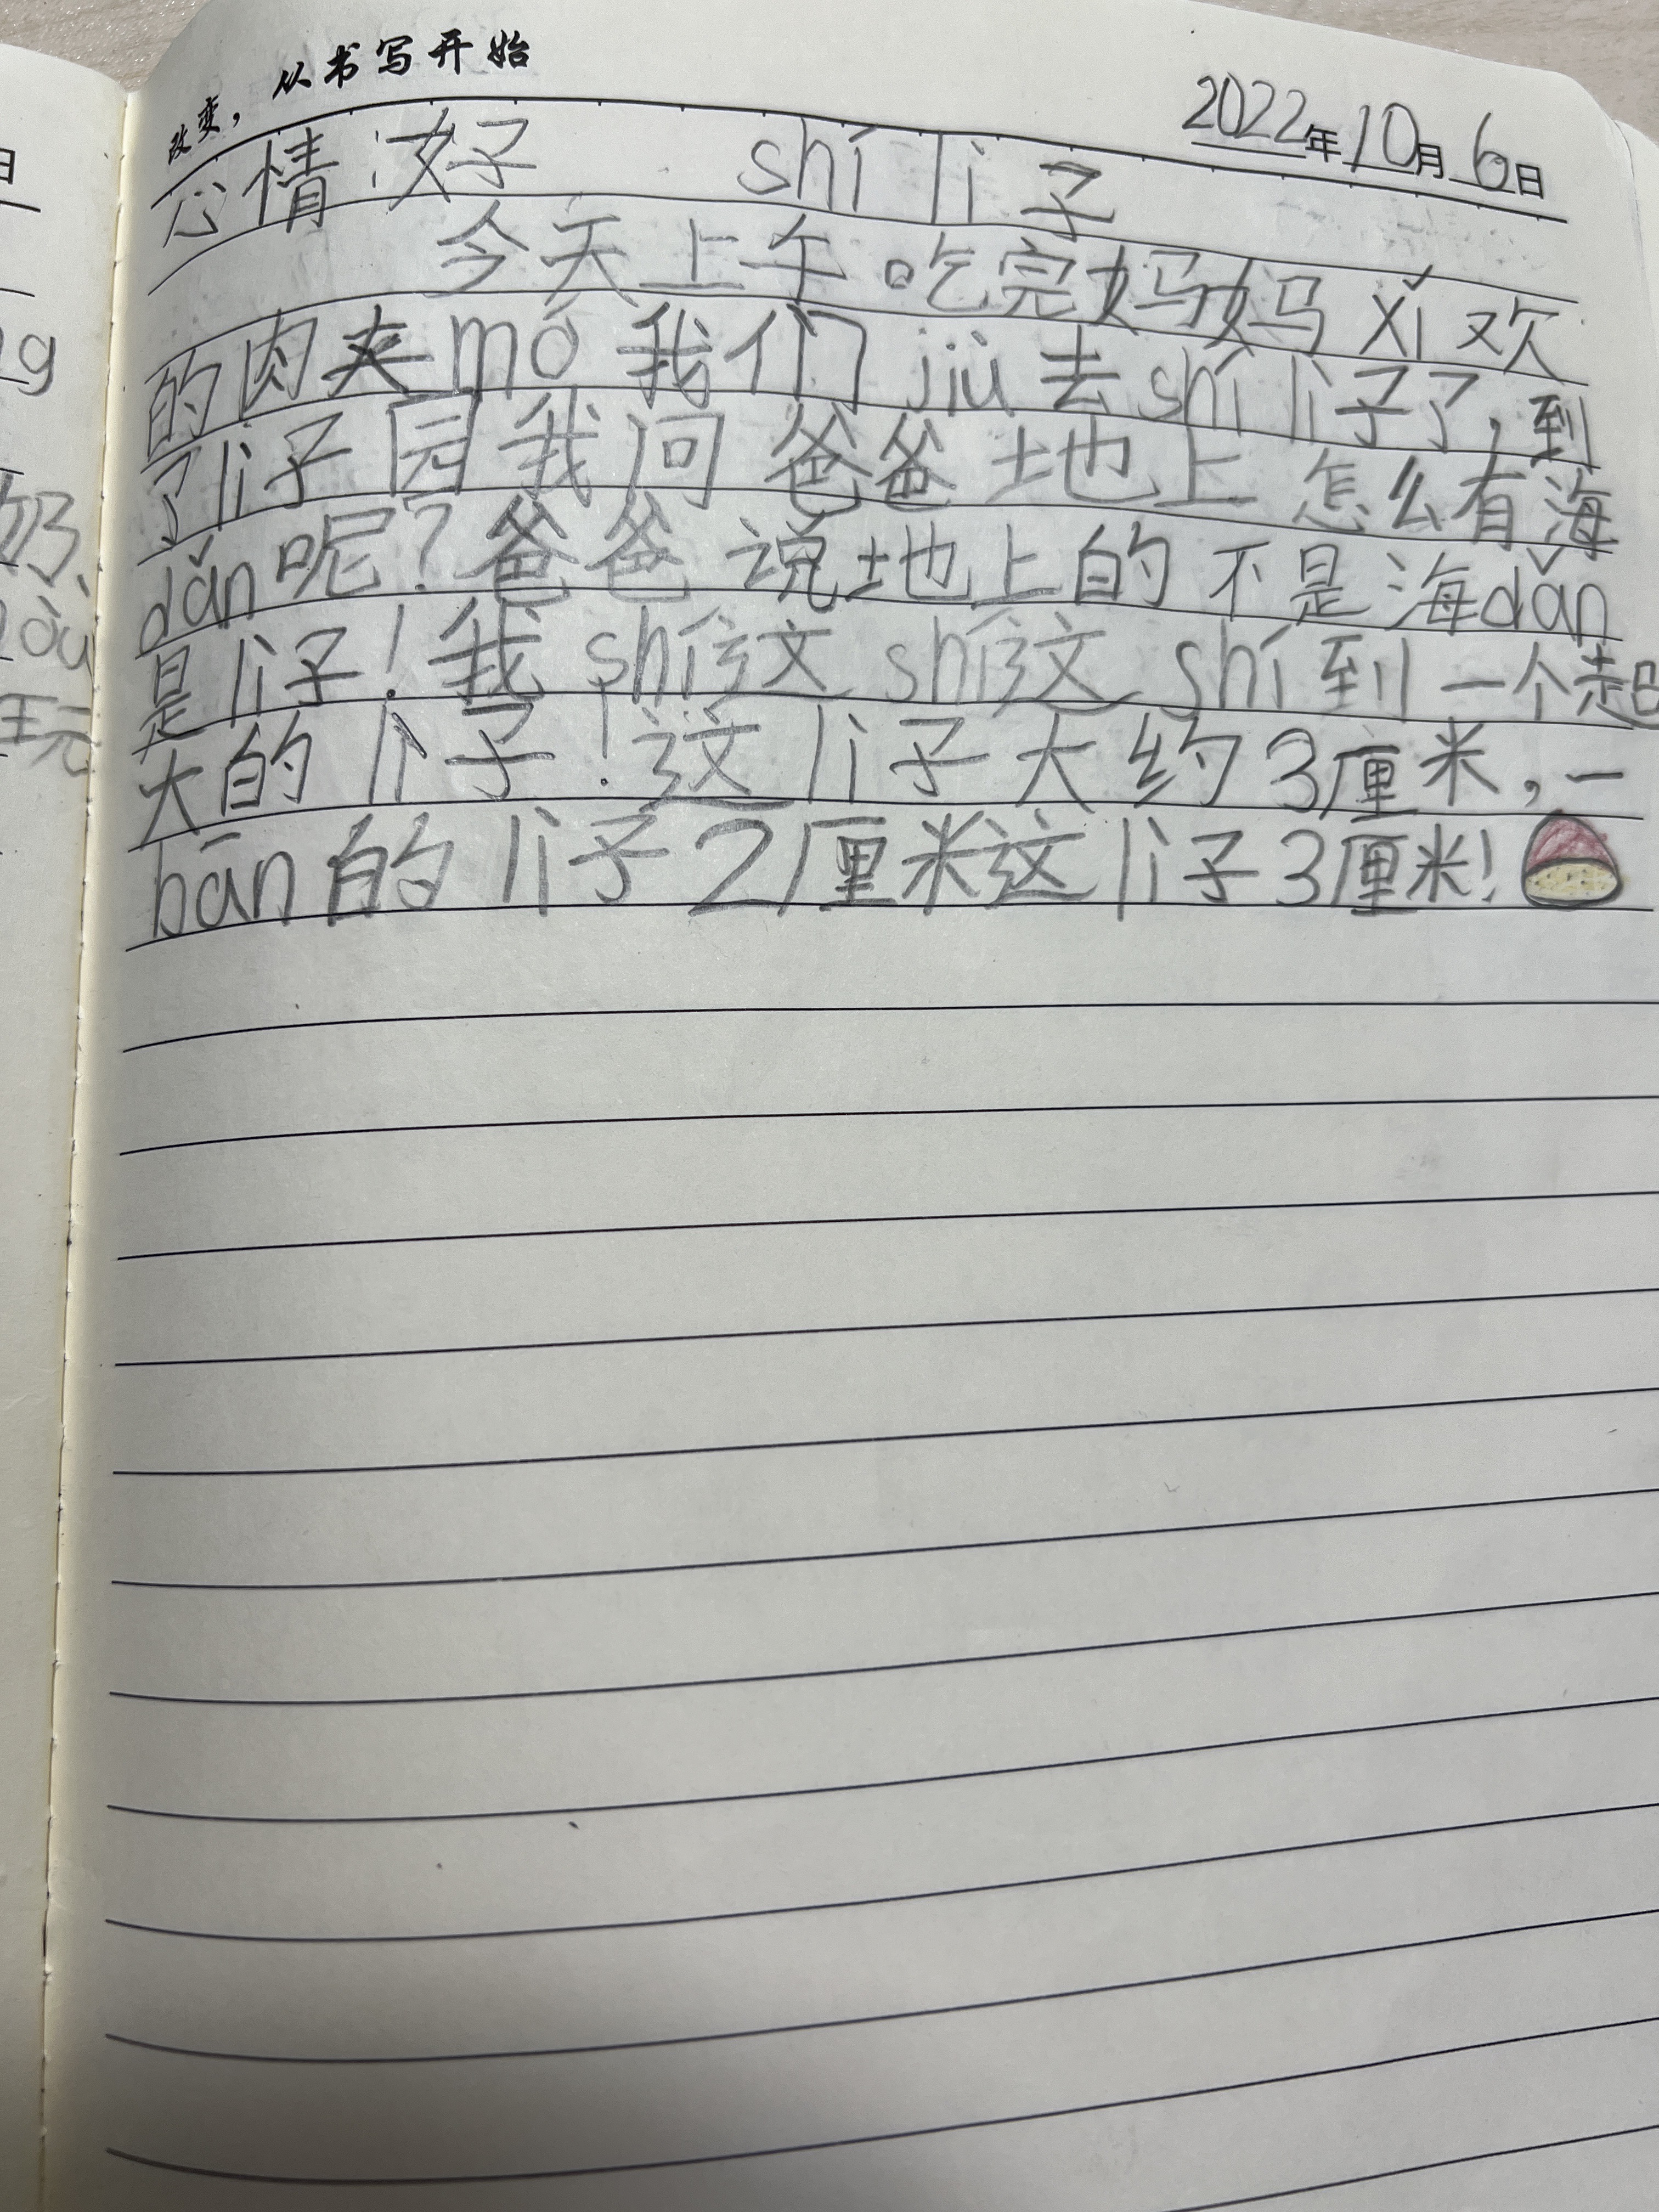 改变，从书写开始
2022年10月6日
心情：好 shí lì 子
今天上午吃完妈妈 xǐ 欢
的肉夹 mó 我们 jiù 去 shí lì 子了，到
了 lì 子园我问爸爸地上怎么有海
dǎn 呢？爸爸说地上的不是海 dǎn
是 lì 子！我 shí 这 shí 这 shí 到一个超
大的 lì 子！这 lì 子大约3厘米，一
bān 的 lì 子2厘米这 lì 子3厘米！
日
g
奶